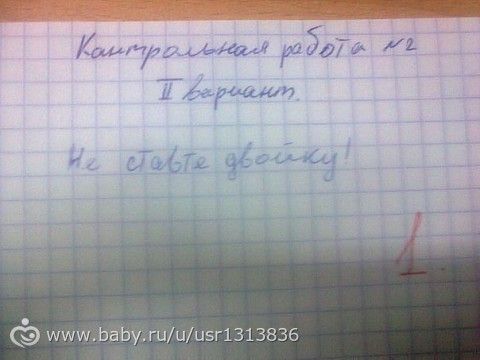 Кантрольная работа №2
II вариант.
Не ставте двойку!
1.
www.baby.ru/u/usr1313836